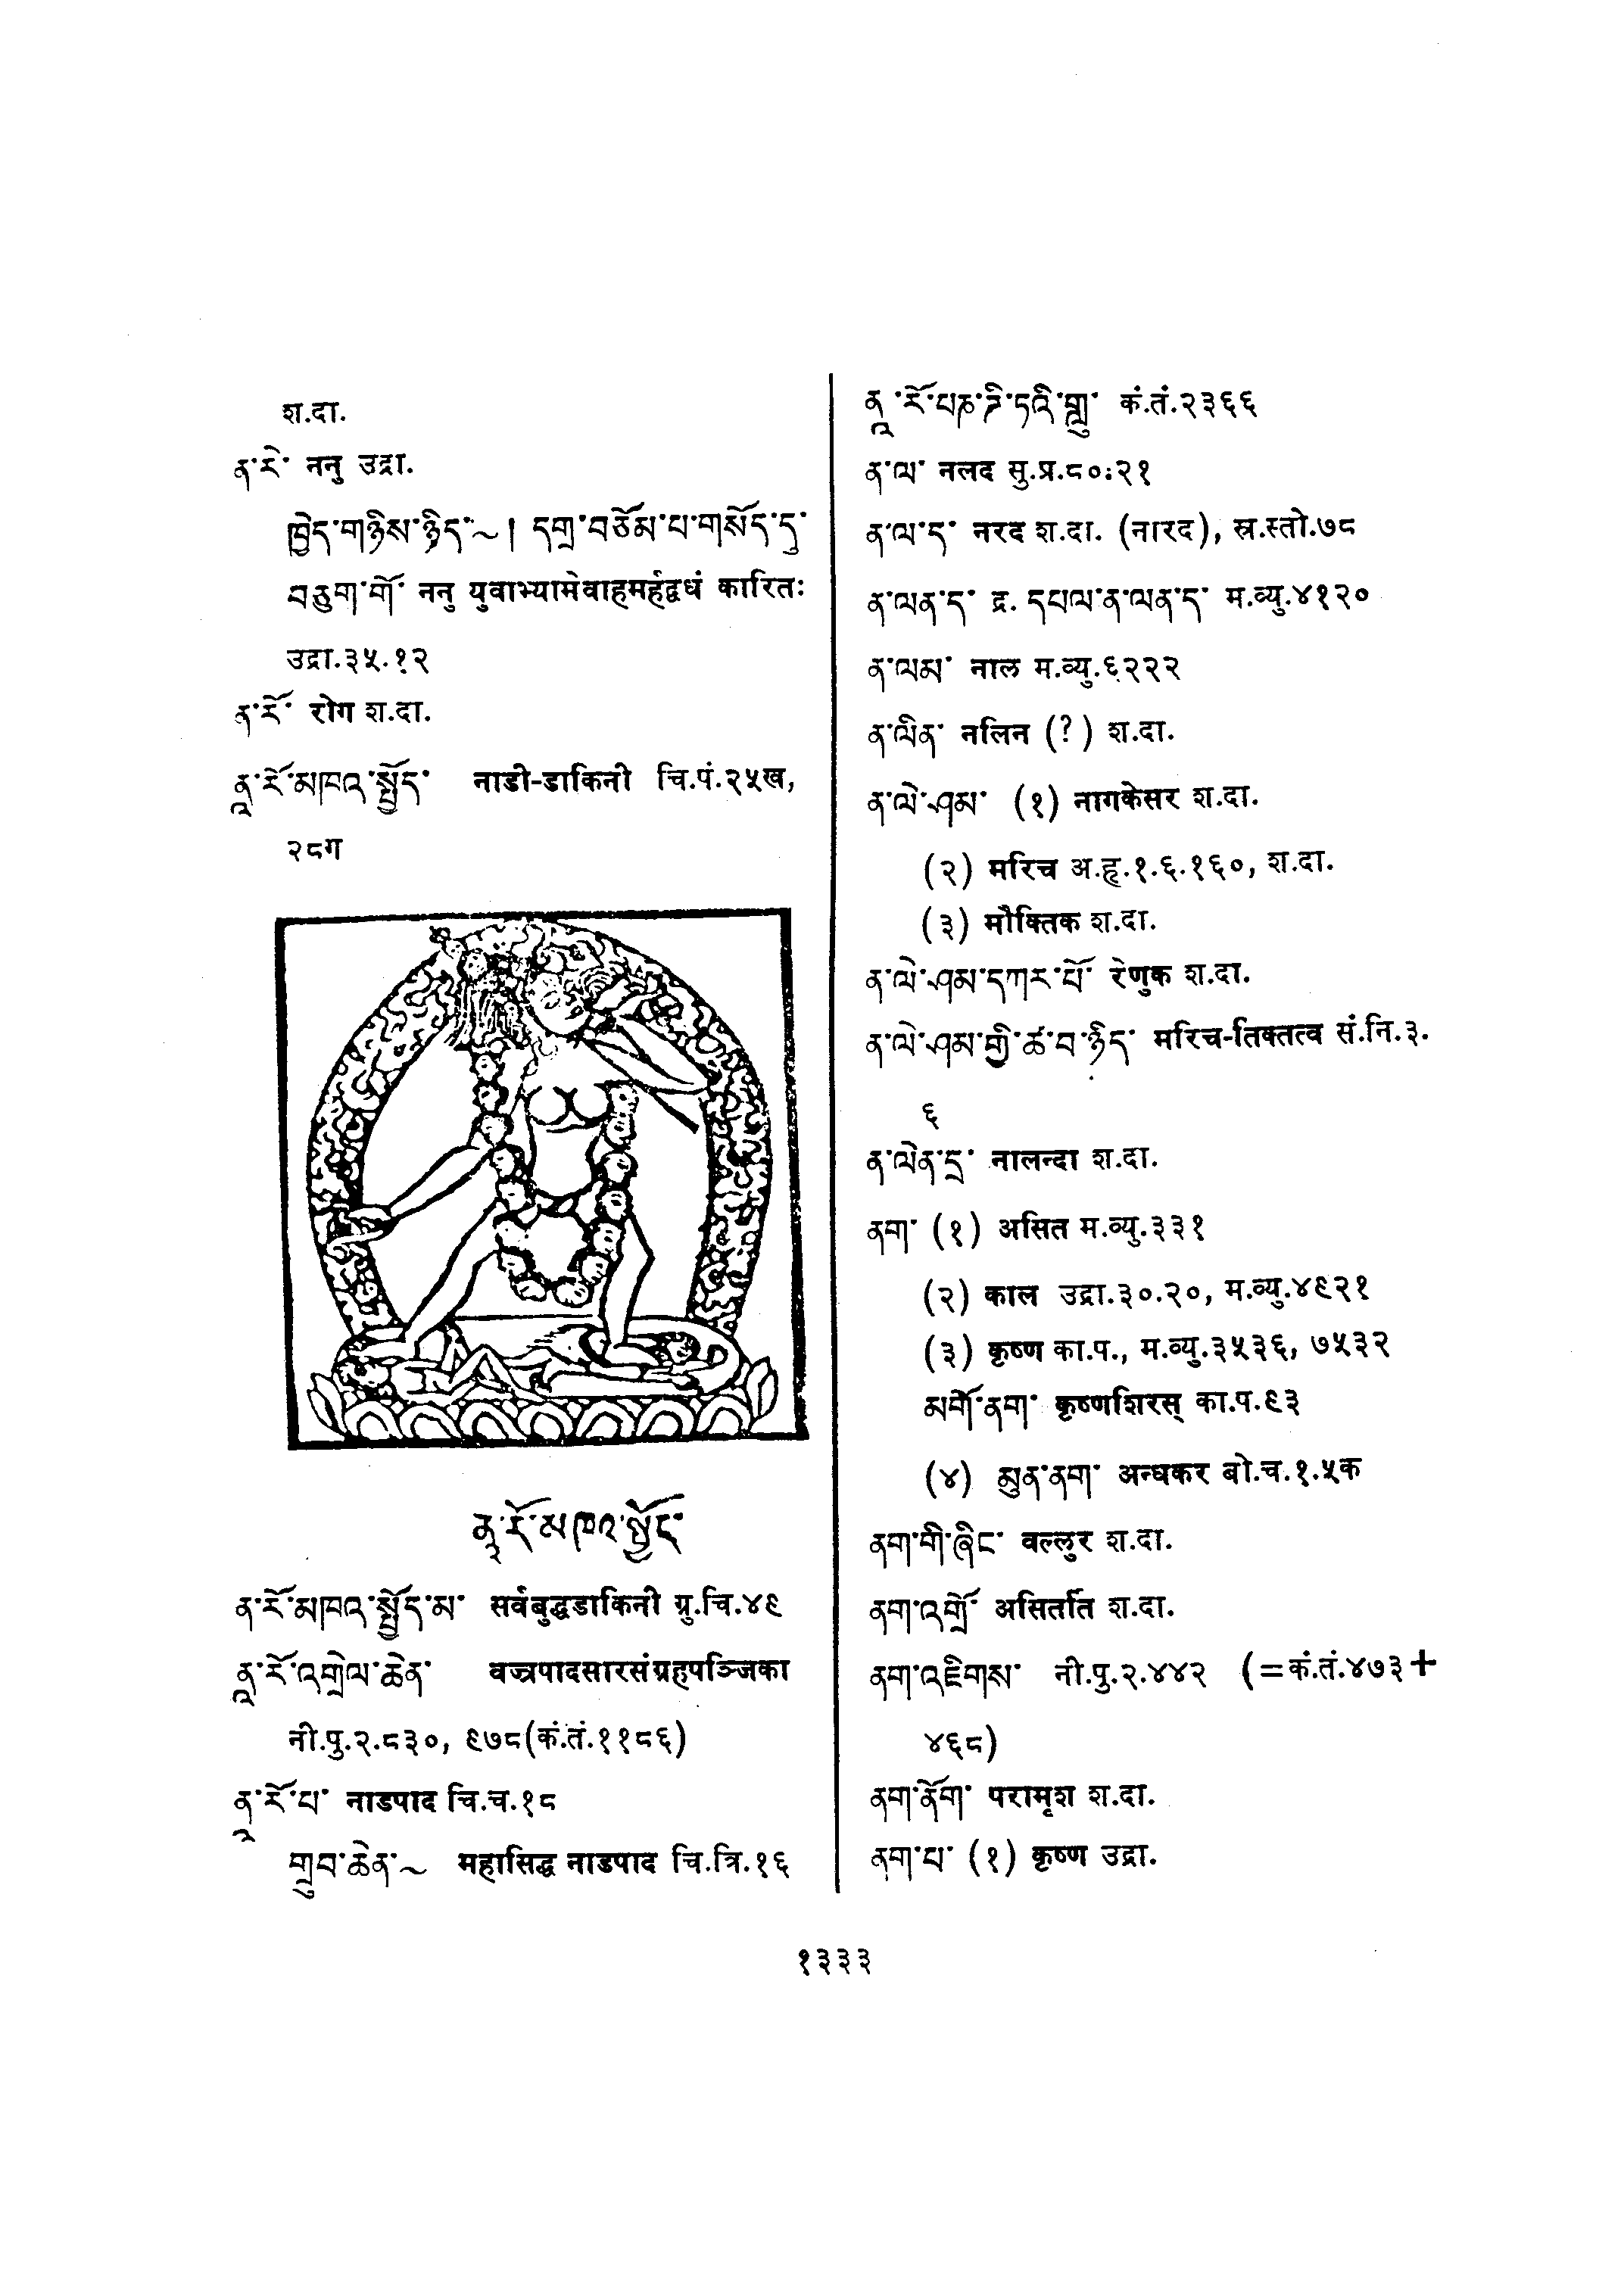 श.दा.
ན་རེ་ ननु उद्रा.
ཁྱེད་གཉིས་ཉིད་~། དགྲ་བཅོམ་པ་གསོད་དུ་
བཅུག་གོ་ ननु युवाभ्यामेवाहमर्हद्वधं कारितः
उद्रा.३५.१२
ན་རོ་ रोग श.दा.
ནཱ་རོ་མཁའ་སྤྱོད་ नाडी-डाकिनी चि.पं.२५ख,
२८ग
ནཱ་རོ་མཁའ་སྤྱོད་
ན་རོ་མཁའ་སྤྱོད་མ་ सर्वबुद्धडाकिनी ग्रु.चि.४९
ནཱ་རོ་འགྲེལ་ཆེན་ वज्रपादसारसंग्रहपञ्जिका
नी.पु.२.८३०, ९७८(कं.तं.११८६)
ནཱ་རོ་པ་ नाडपाद चि.च.१८
གྲུབ་ཆེན་~ महासिद्ध नाडपाद चि.त्रि.१६
ནཱ་རོ་པཎ་ཌི་ཏའི་གླུ་ कं.तं.२३६६
ན་ལ་ नलद सु.प्र.८०:२१
ན་ལ་ད་ नरद श.दा. (नारद), स्र.स्तो.७८
ན་ལན་ད་ द्र. དཔལ་ན་ལན་ད་ म.व्यु.४१२०
ན་ལམ་ नाल म.व्यु.६२२२
ན་ལིན་ नलिन (?) श.दा.
ན་ལེ་ཤམ་ (१) नागकेसर श.दा.
(२) मरिच अ.हृ.१.६.१६०, श.दा.
(३) मौक्तिक श.दा.
ན་ལེ་ཤམ་དཀར་པོ་ रेणुक श.दा.
ན་ལེ་ཤམ་གྱི་ཚ་བ་ཉིད་ मरिच-तिक्तत्व सं.नि.३.
६
ན་ལེན་དྲ་ नालन्दा श.दा.
ནག་ (१) असित म.व्यु.३३१
(२) काल उद्रा.३०.२०, म.व्यु.४९२१
(३) कृष्ण का.प., म.व्यु.३५३६, ७५३२
མགོ་ནག་ कृष्णशिरस् का.प.९३
(४) མུན་ནག་ अन्धकर बो.च.१.५क
ནག་གི་ཞིང་ वल्लुर श.दा.
ནག་འགྲོ་ असितर्ति श.दा.
ནག་འཇིགས་ नी.पु.२.४४२ (=कं.तं.४७३+
४६८)
ནག་ནོག་ परामृश श.दा.
ནག་པ་ (१) कृष्ण उद्रा.
१३३३